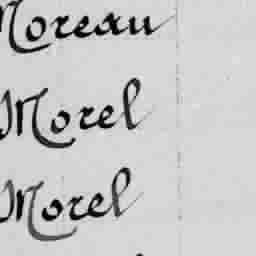 Moreau
Morel
Morel